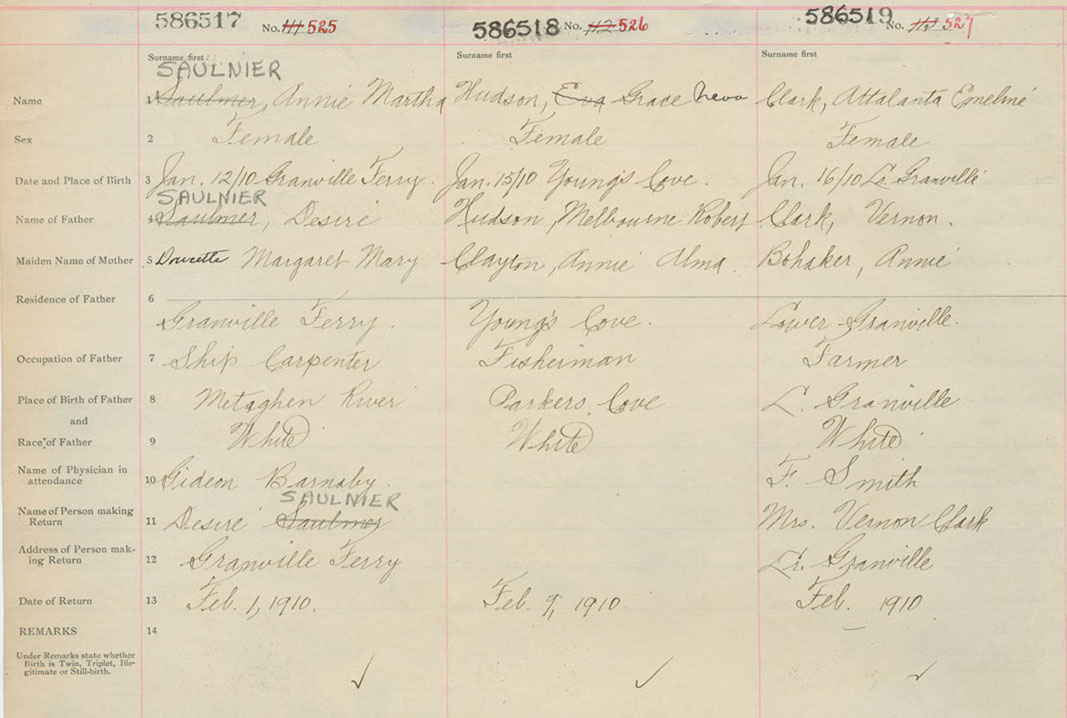 586517 No. 111 525 586518 No. 112 526 586519 No. 113 527
Surname first: Surname first Surname first
SAULNIER
Name 1 Saulmer, Annie Martha Hudson, Eva Grace Neva Clark, Attalanta Emeline
Sex 2 Female Female Female
Date and Place of Birth 3 Jan. 12/10 Granville Ferry. Jan. 15/10 Young's Cove. Jan. 16/10 Lr. Granville
SAULNIER
Name of Father 4 Saulmer, Desire Hudson, Melbourne Robert Clark, Vernon.
Maiden Name of Mother 5 Doucette Margaret Mary Clayton, Annie Alma. Bohaker, Annie
Residence of Father 6
Granville Ferry. Young's Cove. Lower Granville.
Occupation of Father 7 Ship Carpenter Fisherman Farmer
Place of Birth of Father 8 Metaghen River Parkers Cove L. Granville
and
Race of Father 9 White White White
Name of Physician in
attendance 10 Gideon Barnaby. F. Smith
SAULNIER
Name of Person making
Return 11 Desire Saulmer Mrs. Vernon Clark
Address of Person mak-
ing Return 12 Granville Ferry Lr. Granville
Date of Return 13 Feb. 1, 1910. Feb. 9, 1910 Feb. 1910
REMARKS 14
Under Remarks state whether
Birth is Twin, Triplet, Ille-
gitimate or Still-birth.